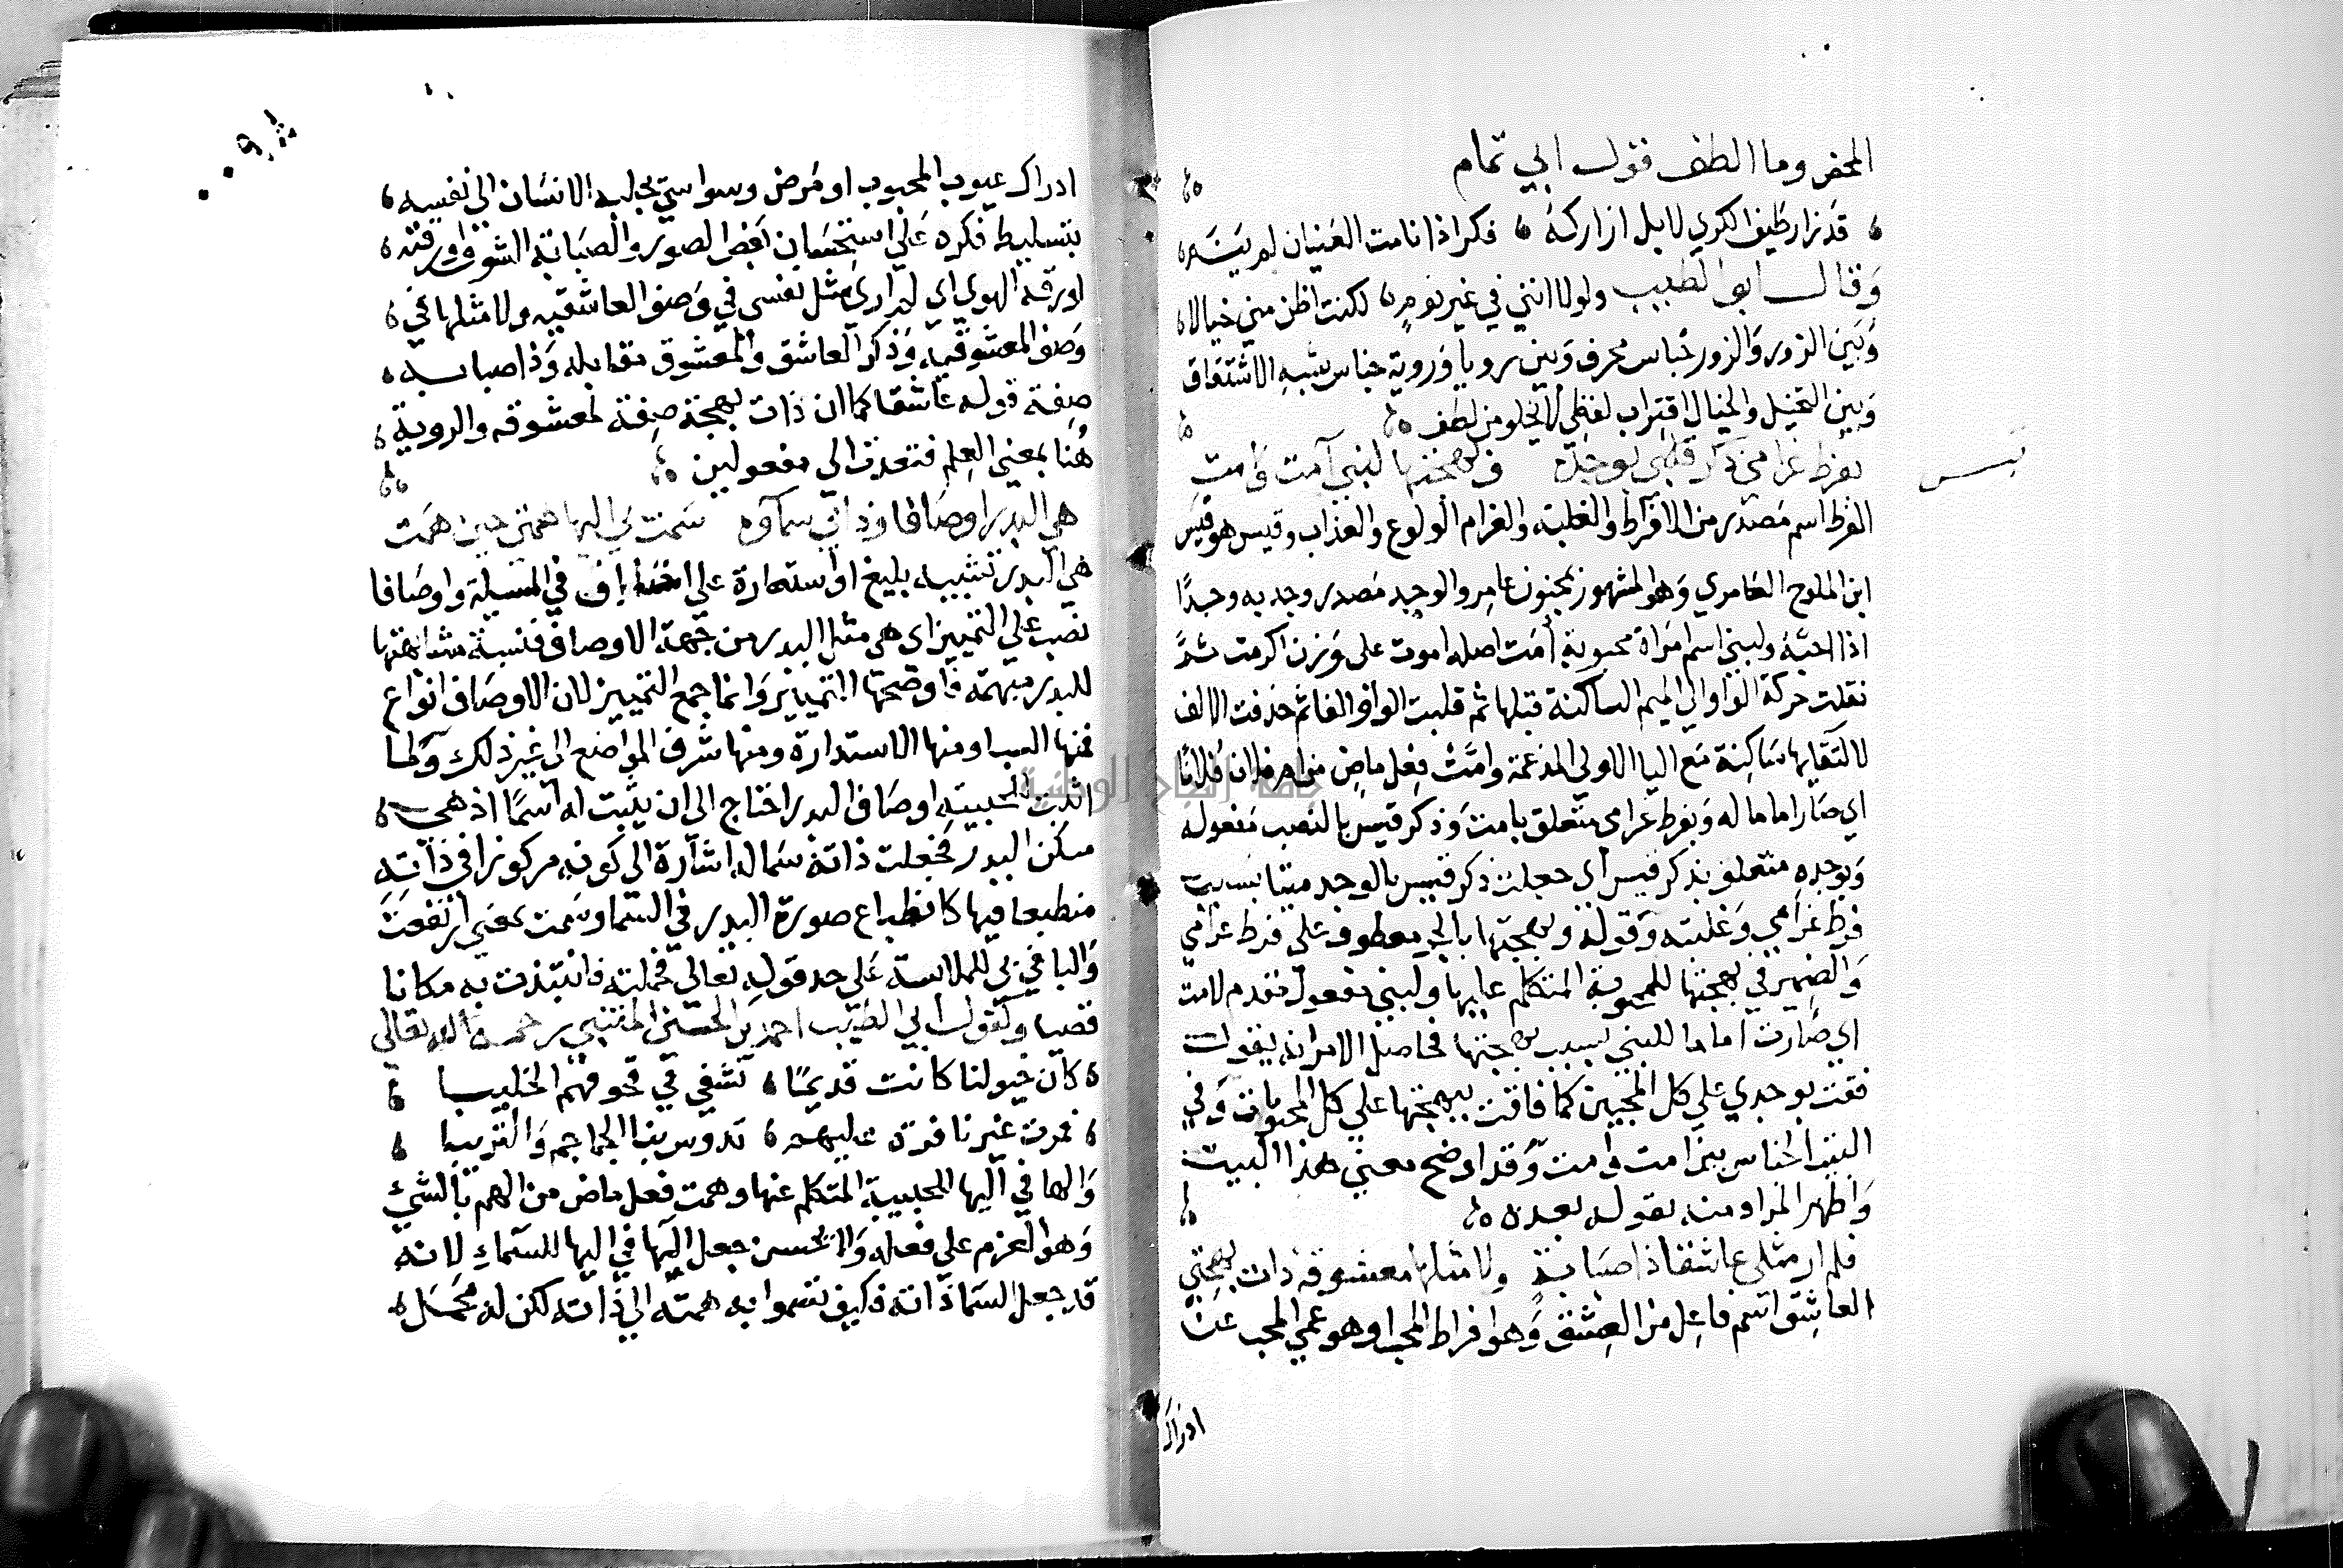 المحض وما الطف قول ابي تمام
قد زار طيف الكري لا بل ازاركه فكر اذا نامت العينان لم ينمه
وقال ابو الطيب ولولا انني في غير نوم لكنت اظن مني خيالا
وبين الزور والزور جناس محرف وبين رويا وروية جناس شبه الاشتقاق
وبين التخيل والخيال اقتراب لفظي لا يخلو من لطف
بفرط غرامي ذكر قيس بوجده وبهجتها لبني آمت وامت
قيس
الفرط اسم مصدر من الافراط والغلبة والغرام الولوع والعذاب وقيس هو قيس
ابن الملوح العامري وهو المشهور بمجنون عامر والوجد مصدر وجد به وجدًا
اذا احبه ولبني اسم امراة محبوبة أمت اصله اموت على وزن اكرمت
نقلت حركة الواو الي الميم الساكنة قبلها ثم قلبت الواو الفا ثم حذفت الالف
لالتقايها ساكنة مع اليا الاولي المدغمة وامَّتْ فعل ماض من ام فلان فلانًا
اي صار اماما له وبفرط غرامي متعلق بامت وذكر قيس بالنصب مفعوله
وبوجده متعلق بذكر قيس أي جعلت ذكر قيس بالوجد ميتا بسبب
فرط غرامي وغلبته وقوله وبهجتها بالجر معطوف على فرط غرامي
والضمير في بهجتها للمحبوبة المتكلم عليها ولبني مفعول مقدم لامت
اي صارت اماما للبني بسبب بهجتها فحاصل الامر انه يقول
فقت بوجدي علي كل المحبين كما فاقت ببهجتها علي كل المحبوبات وفي
البيت الجناس بين امت وامت وقد اوضح معني هذا البيت
واظهر المراد منه بقوله بعده
فلم ار مثلي عاشقا ذا صبابة ولا مثلها معشوقة ذات بهجتي
العاشق اسم فاعل من العشق وهو افراط الحب او هو عمي المحب عن
ادراك
ادراك عيوب المحبوب او مرض وسواسي يجلبه الانسان الي نفسه
بتسليط فكره علي استحسان بعض الصور والصبابة الشوق او رقته
او رقة الهوي اي لم اري مثل نفسي في وصف العاشقيه ولا مثلها في
وصف المعشوقيه وذكر العاشق والمعشوق مقابله وذا صبابة
صفة قوله عاشقا كما ان ذات بهجة صفة لمعشوقه والروية
هنا بمعني العلم فتعدت الي مفعولين
هي البدر اوصافا وذاتي سماوه سمت بي اليها همتي حين همت
هي البدر تشبيه بليغ او استعارة علي اختلاف في المسيلة واوصافا
نصب علي التمييز اي هي مثل البدر من جهة الاوصاف فنسبة مشابهتها
للبدر مبهمة فاوضحها التمييز وانما جمع التمييز لان الاوصاف انواع
فمنها السبا ومنها الاستدارة ومنها شرف المواضع الي غير ذلك ولما
اثبت للحبيبة اوصاف البدر احتاج الي ان يثبت له اسمًا اذ هي
مسكن البدر فجعلت ذاته سماله اشارة الي كونه مركوزا في ذاته
منطبعا فيها كانطباع صورة البدر في السما وسمت بمعني ارتفعت
والبا في بي للملابسة علي حد قوله تعالي فحملته فانتبذت به مكانا
قصيا وكقول ابي الطيب احمد بن الحسين المتنبي رحمه الله تعالي
كان خيولنا كانت قديمًا تسقي في قحوفهم الحليبا
فمرت غير نافرة عليهم تدوس بنا الجماجم والتريبا
والها في اليها للحبيبة المتكلم عنها وهمت فعل ماض من الهم بالشي
وهو العزم علي فعله والاحسن جعل الها في اليها للسماء لانه
قد جعل السما ذاته فكيف تسموا به همته الي ذاته لكن له محمل
جامعة النجاح الوطنية